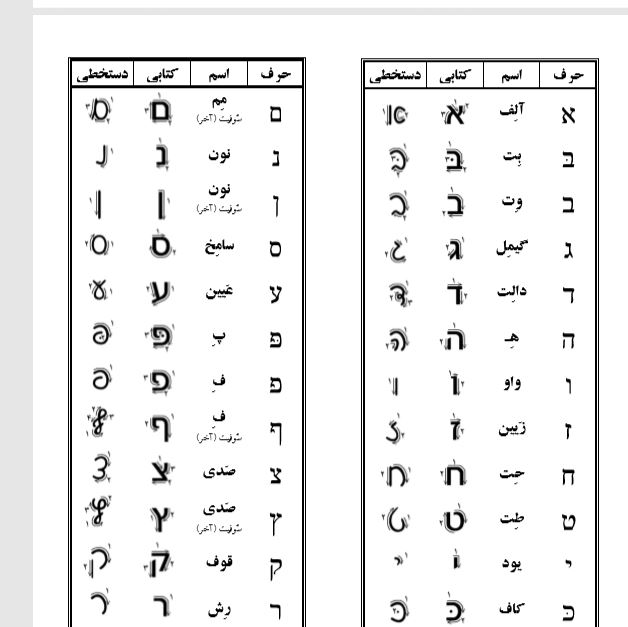 حرف اسم کتابی دستخطی
א آلِف א א
בּ بِت בּ בּ
ב وِت ב ב
ג گیمِل ג ג
ד دالِت ד ד
ה هِـ ה ה
ו واو ו ו
ז زَیین ז ז
ח حِت ח ח
ט طِت ט ט
י یود י י
כּ کاف כּ כּ
حرف اسم کتابی دستخطی
ם مِم ם ם
سُوفیت (آخر)
נ نون נ נ
ן نون ן ן
سُوفیت (آخر)
ס سامِخ ס ס
ע عَیین ע ע
פּ پِ פּ פּ
פ فِ פ פ
ף فِ ף ף
سُوفیت (آخر)
צ صَدی צ צ
ץ صَدی ץ ץ
سُوفیت (آخر)
ק قوف ק ק
ר رِش ר ר